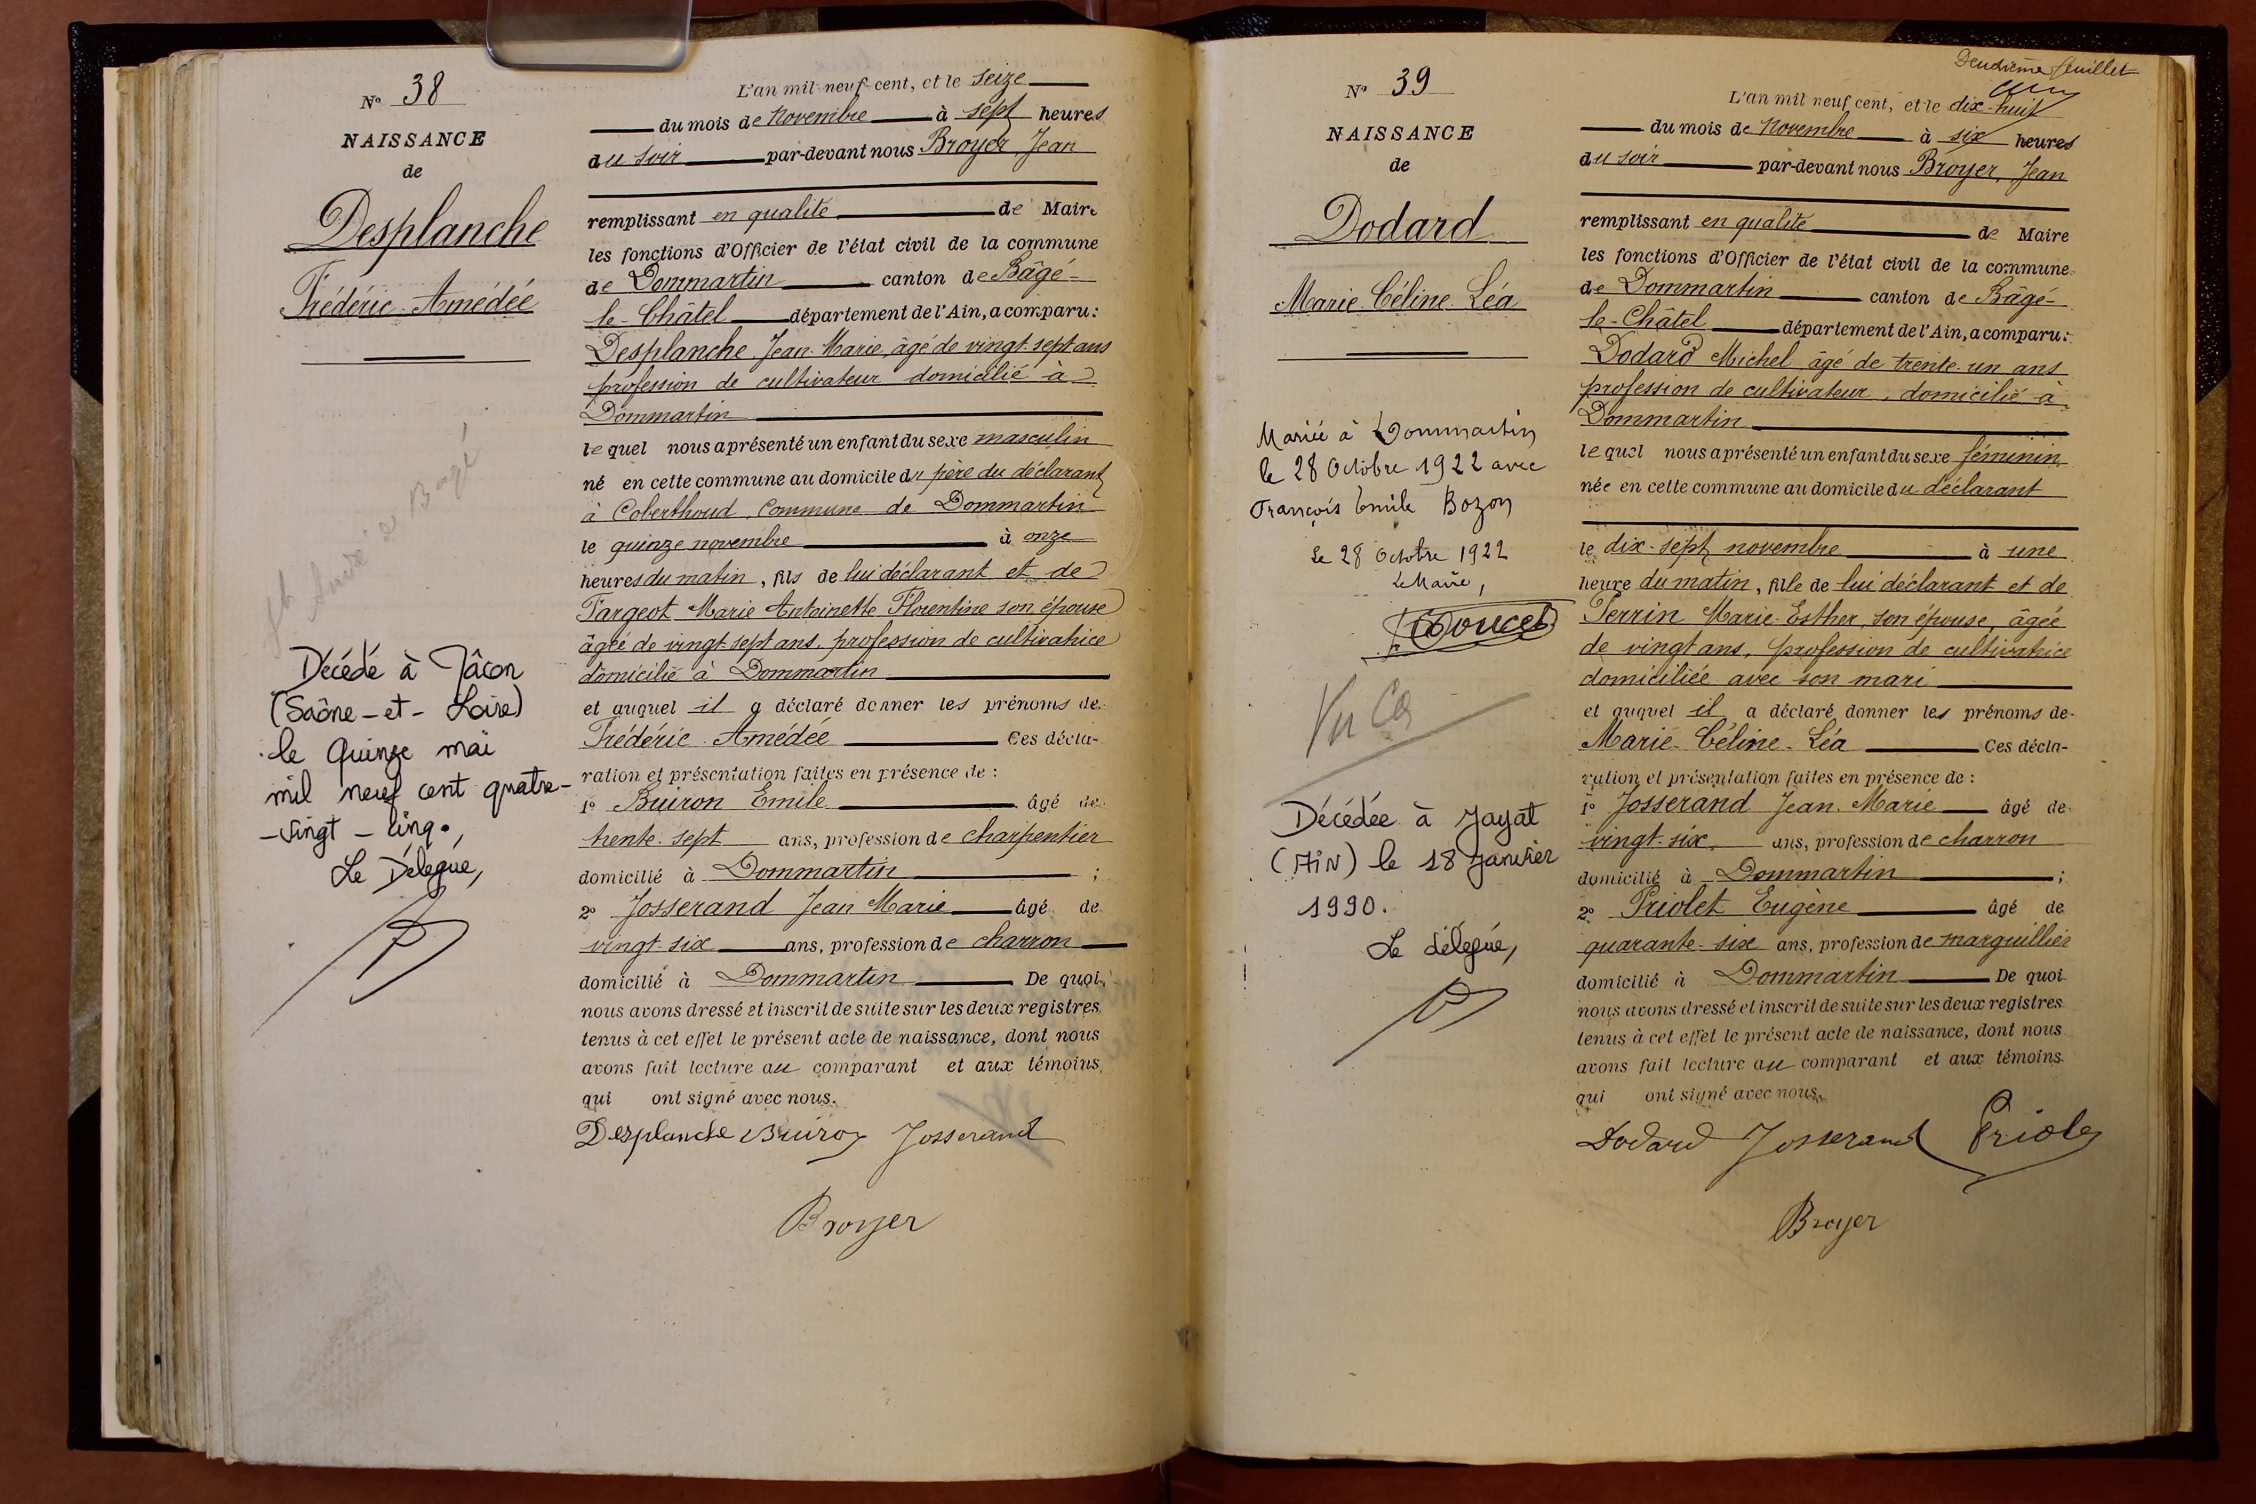 N° 38
NAISSANCE
de
Desplanche
Frédéric Amédée
St André de Bagé
Décédé à Mâcon
(Saône-et-Loire)
le Quinze mai
mil neuf cent quatre-
-vingt-cinq.,
Le Délégué,
L'an mil neuf cent, et le seize
du mois de Novembre à sept heures
du soir par-devant nous Broyer, Jean
remplissant en qualité de Maire
les fonctions d'Officier de l'état civil de la commune
de Dommartin canton de Bâgé-
le-Châtel département de l'Ain, a comparu:
Desplanche Jean Marie, âgé de vingt sept ans
profession de cultivateur domicilié à
Dommartin
lequel nous a présenté un enfant du sexe masculin
né en cette commune au domicile du père du déclarant
à Coberthoud, Commune de Dommartin
le quinze novembre à onze
heures du matin, fils de lui déclarant et de
Fargeot Marie Antoinette Florentine son épouse
âgée de vingt sept ans, profession de cultivatrice
domicilié à Dommartin
et auquel il a déclaré donner les prénoms de
Frédéric Amédée Ces décla-
ration et présentation faites en présence de:
1° Buiron Emile âgé de
trente-sept ans, profession de charpentier
domicilié à Dommartin ;
2° Josserand Jean Marie âgé de
vingt-six ans, profession de charron
domicilié à Dommartin De quoi,
nous avons dressé et inscrit de suite sur les deux registres
tenus à cet effet le présent acte de naissance, dont nous
avons fait lecture au comparant et aux témoins
qui ont signé avec nous.
Desplanche Buiron Josserand
Broyer
Deuxième feuillet
N° 39
NAISSANCE
de
Dodard
Marie Céline Léa
Mariée à Dommartin
le 28 Octobre 1922 avec
François Emile Bozon
Le 28 Octobre 1922
Le Maire,
Doucet
Vu
Décédée à Jayat
(AIN) le 18 Janvier
1990.
Le délégué,
L'an mil neuf cent, et le dix-huit
du mois de Novembre à six heures
du soir par-devant nous Broyer, Jean
remplissant en qualité de Maire
les fonctions d'Officier de l'état civil de la commune
de Dommartin canton de Bâgé-
le-Châtel département de l'Ain, a comparu:
Dodard Michel âgé de trente-un ans
profession de cultivateur, domicilié à
Dommartin
lequel nous a présenté un enfant du sexe féminin
née en cette commune au domicile du déclarant
le dix-sept novembre à une
heure du matin, fille de lui déclarant et de
Perrin Marie-Esther, son épouse, âgée
de vingt ans, profession de cultivatrice
domiciliée avec son mari
et auquel il a déclaré donner les prénoms de
Marie-Céline-Léa Ces décla-
ration et présentation faites en présence de:
1° Josserand Jean Marie âgé de
vingt-six ans, profession de charron
domicilié à Dommartin ;
2° Priolet Eugène âgé de
quarante-six ans, profession de marguillier
domicilié à Dommartin De quoi
nous avons dressé et inscrit de suite sur les deux registres
tenus à cet effet le présent acte de naissance, dont nous
avons fait lecture au comparant et aux témoins
qui ont signé avec nous.
Dodard Josserand Priolet
Broyer